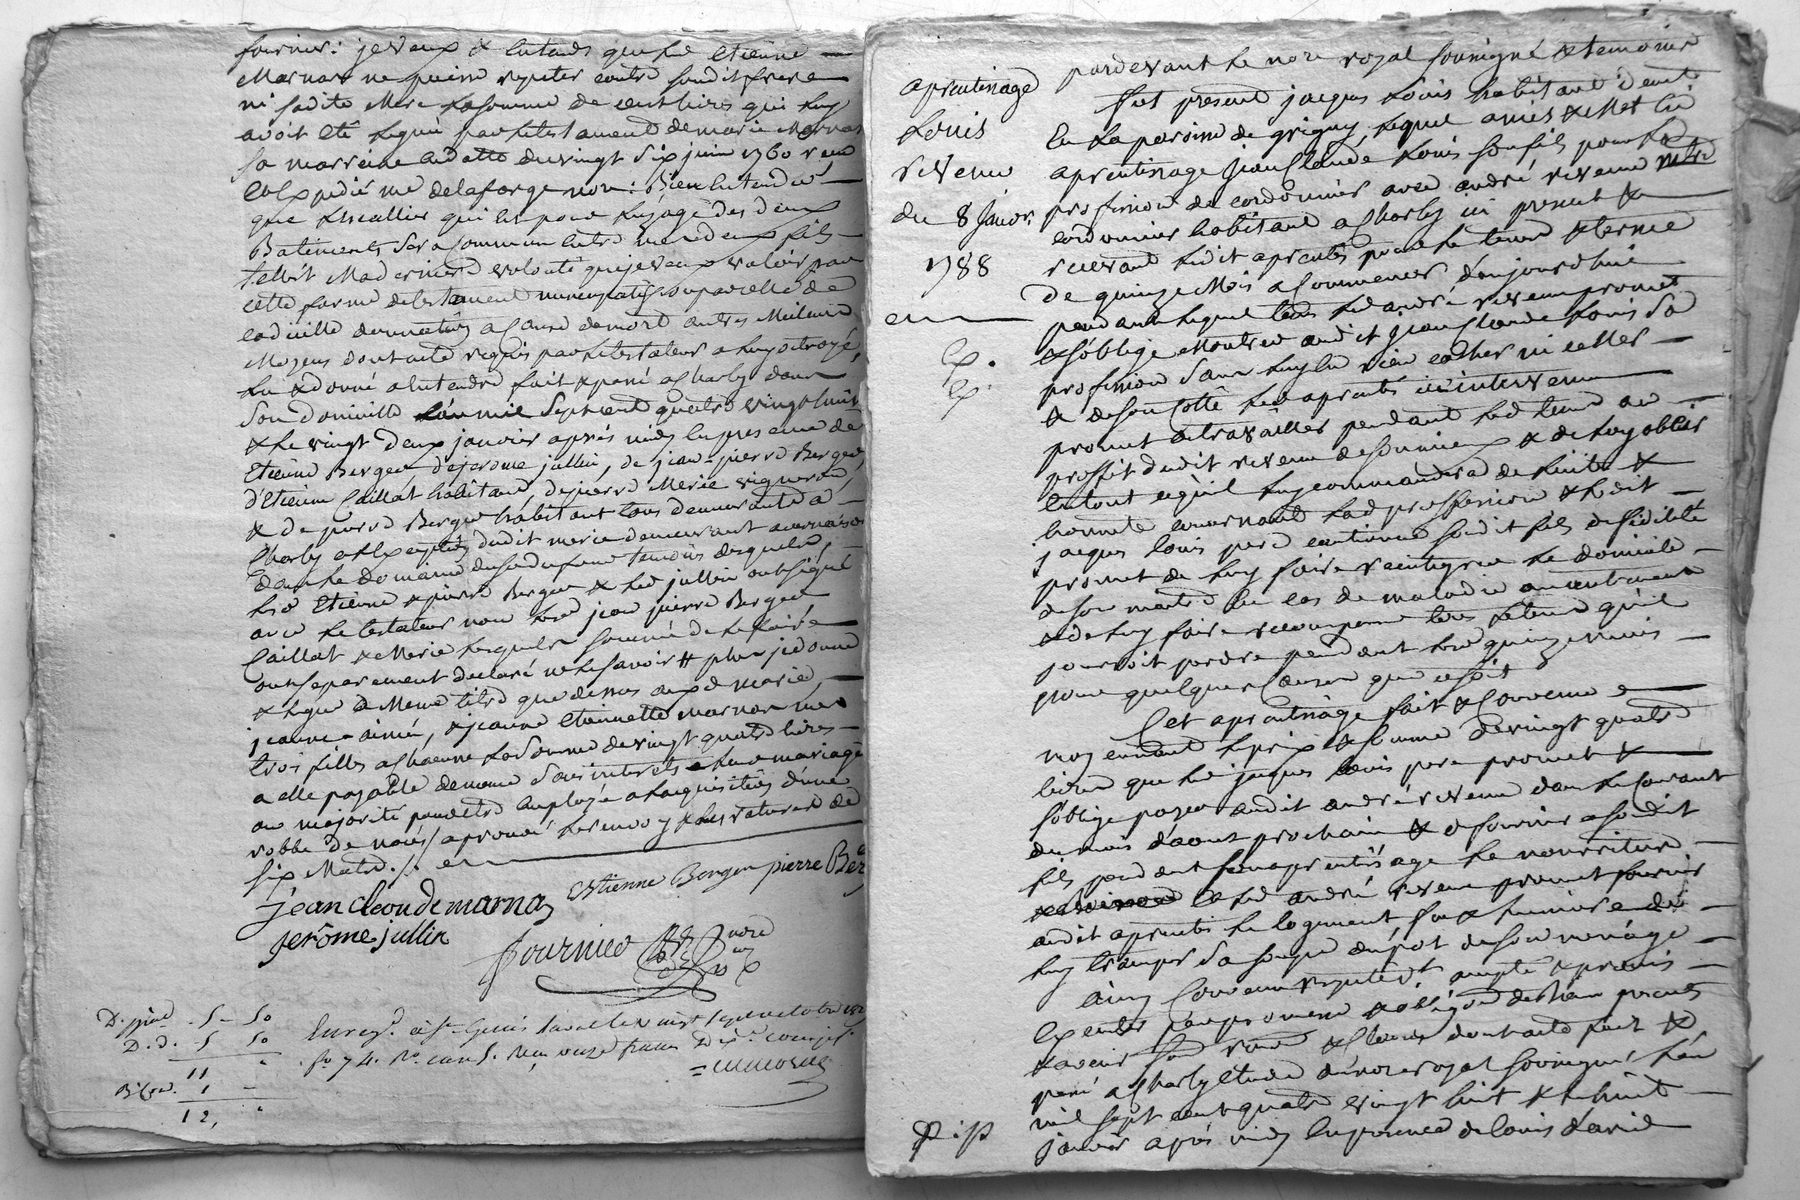 fournier: je veux & entends que led etienne
Marnas ne puisse repeter contre sondit frere
ni sadite Mere la somme de cent livres qui luy
avoit eté leguée par le testament de marie Marnas
sa marreine en datte du vingt six juin 1760 reçu
expedié me delaforge nore: Bien entendu
que l'escallier qui est pour l'usage des deux
Batiments sera commun entre mes deux fils
telle est Ma derniere volonté que je veux valoir par
cette forme de testament nuncupatif ou par celle de
codicille donnation a cause de mort autres Meilleurs
Moyens dont acte requis par le testateur a luy octroyé,
lu & donné a entendre fait & passé a Charly dans
son domicille l'an mil sept cent quatre vingt huit
& le vingt deux janvier après midy en presence de
Etienne Berger de jerome jullin, de jean-pierre Berger,
d'Etienne Caillat habitans, de pierre Merie vigneron
& de pierre Berger habitant tous demeurants a
Charly a l'exception dudit merie demeurant a vernaison
dans le domaine temoins desquels
led Etienne & pierre Berger & led jullin ont signé
avec le testateur non led jean pierre Berger
Caillat & Merie lesquels sommé de le faire
ont separement declaré ne le savoir # plus je donne
& legue a Meme titre que dessus aux d marie,
jeanne ainée, & jeanne etiennette marnas mes
trois filles a chacune la somme de vingt quatre livres
a elle payable de meme sans interets a leur mariage
ou majorité pour etre employé a l'acquisition d'une
robbe de noces aprouvé le renvoy & les ratures de
six Mots ./.
jean cleaude marnas estienne Berger pierre Ber
jerôme jullin
fournier nore
D. pial - 5 - 50
D. d. - 5 50
11
1 -
12,
Enregé. à St Genis Laval le vingt sept octobre
fo. 74. Ro. case 5. Reçu onze francs Dixe compris
aprentissage
Louis
reveux
du 8 janvr.
1788
Ex.
Ex.
pardevant le nore royal soussigné & temoins
fut present jacques Louis habitant demt
en la paroisse de grigny, lequel a mis & Met en
aprentissage jean Claude Louis son fils pour la
profession de cordonnier avec andré reveux mtre
cordonnier habitant a Charly ici present &
recevant ledit aprentis pour le tems & terme
de quinze Mois a Commencer d'aujourd'hui
pendant lequel tems led andré reveux promet
& s'oblige Montrer audit jean Claude Louis sa
profession sans luy en rien cacher ni celler
& de son cotté led aprentis ici intervenu
promet de travailler pendant led tems au
proffit dudit reveux de son mieux & de luy obeir
en tout ce qu'il luy commandera de licite &
honnete concernant lad proffession & ledit
jacques louis pere cautionne sondit fils de fidelité
promet de luy faire reintegrer le domicile
de son maitre en cas de maladie ou autrement
& de luy faire recompenser tous le tems qu'il
pourroit perdre pendant led quinze Mois
pour quelques causes que ce soit
Cet aprentissage fait & Convenu
moyennant le prix & somme de vingt quatre
livres que led jacques Louis pere promet &
s'oblige payer audit andré reveux dans le Courant
du mois d'aout prochain & de fournir a sondit
fils pendant son aprentissage la nourriture
& led andré reveux promet fournir
audit aprentis le logement feu & lumiere & de
luy tremper sa soupe au pot de son menage
Ainsy Convenu respectivt accepté & promis
executer par promesse & obligation de biens presents
& avenir soumi & clauses dont acte fait &
passé a Charly etude du nore royal soussigné l'an
mil sept cent quatre vingt huit & le huit
janvier après midy en presence de louis david